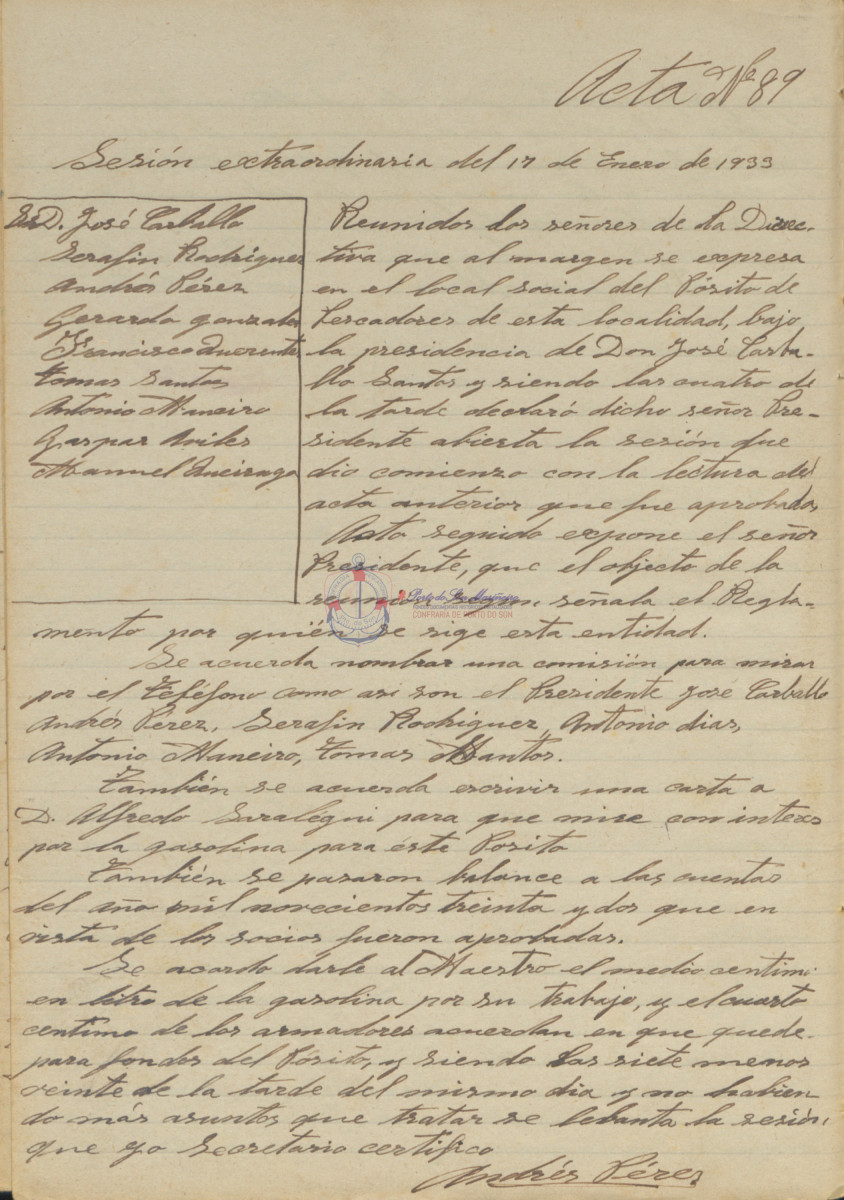 Acta Nº 89
Sesión extraordinaria del 17 de Enero de 1933
D. José Carballo
Serafin Rodriguez
Andrés Pérez
Gerardo gonzales
Francisco
Tomas Santos
Antonio Maneiro
Gaspar Aviles
Manuel Queiruga
Reunidos los señores de la Direc-
tiva que al margen se expresa
en el local social del Pósito de
Pescadores de esta localidad, bajo
la presidencia de Don José Carba-
llo Santos y siendo las cuatro de
la tarde declaró dicho señor Pre-
sidente abierta la sesión que
dio comienzo con la lectura del
acta anterior que fue aprobada,
Acto seguido expone el señor
Presidente, que el objecto de la
reunión según, señala el Regla-
mento por quién se sige esta entidad.
Se acuerda nombrar una comisión para mirar
por el Teféfono como asi son el Presidente José Carballo
Andrés Pérez, Serafin Rodriguez, Antonio dias,
Antonio Maneiro, Tomas Santos.
También se acuerda escrivir una carta a
D. Alfredo Saralegui para que mire con interes
por la gasolina para éste Posito
También se pasaron balance a las cuentas
del año mil novecientos treinta y dos que en
vista de los socios fueron aprobadas.
Se acordo darle al Maestro el medio centimi
en litro de la gasolina por su trabajo, y el cuarto
centimo de los armadores acuerdan en que quede
para fondos del Pósito, y siendo las siete menos
veinte de la tarde del mismo dia y no habien
do más asuntos que tratar se lebanta la sesión,
que yo Secretario certifico
Andrés Pérez
CONFRARÍA DE PORTO DO SON